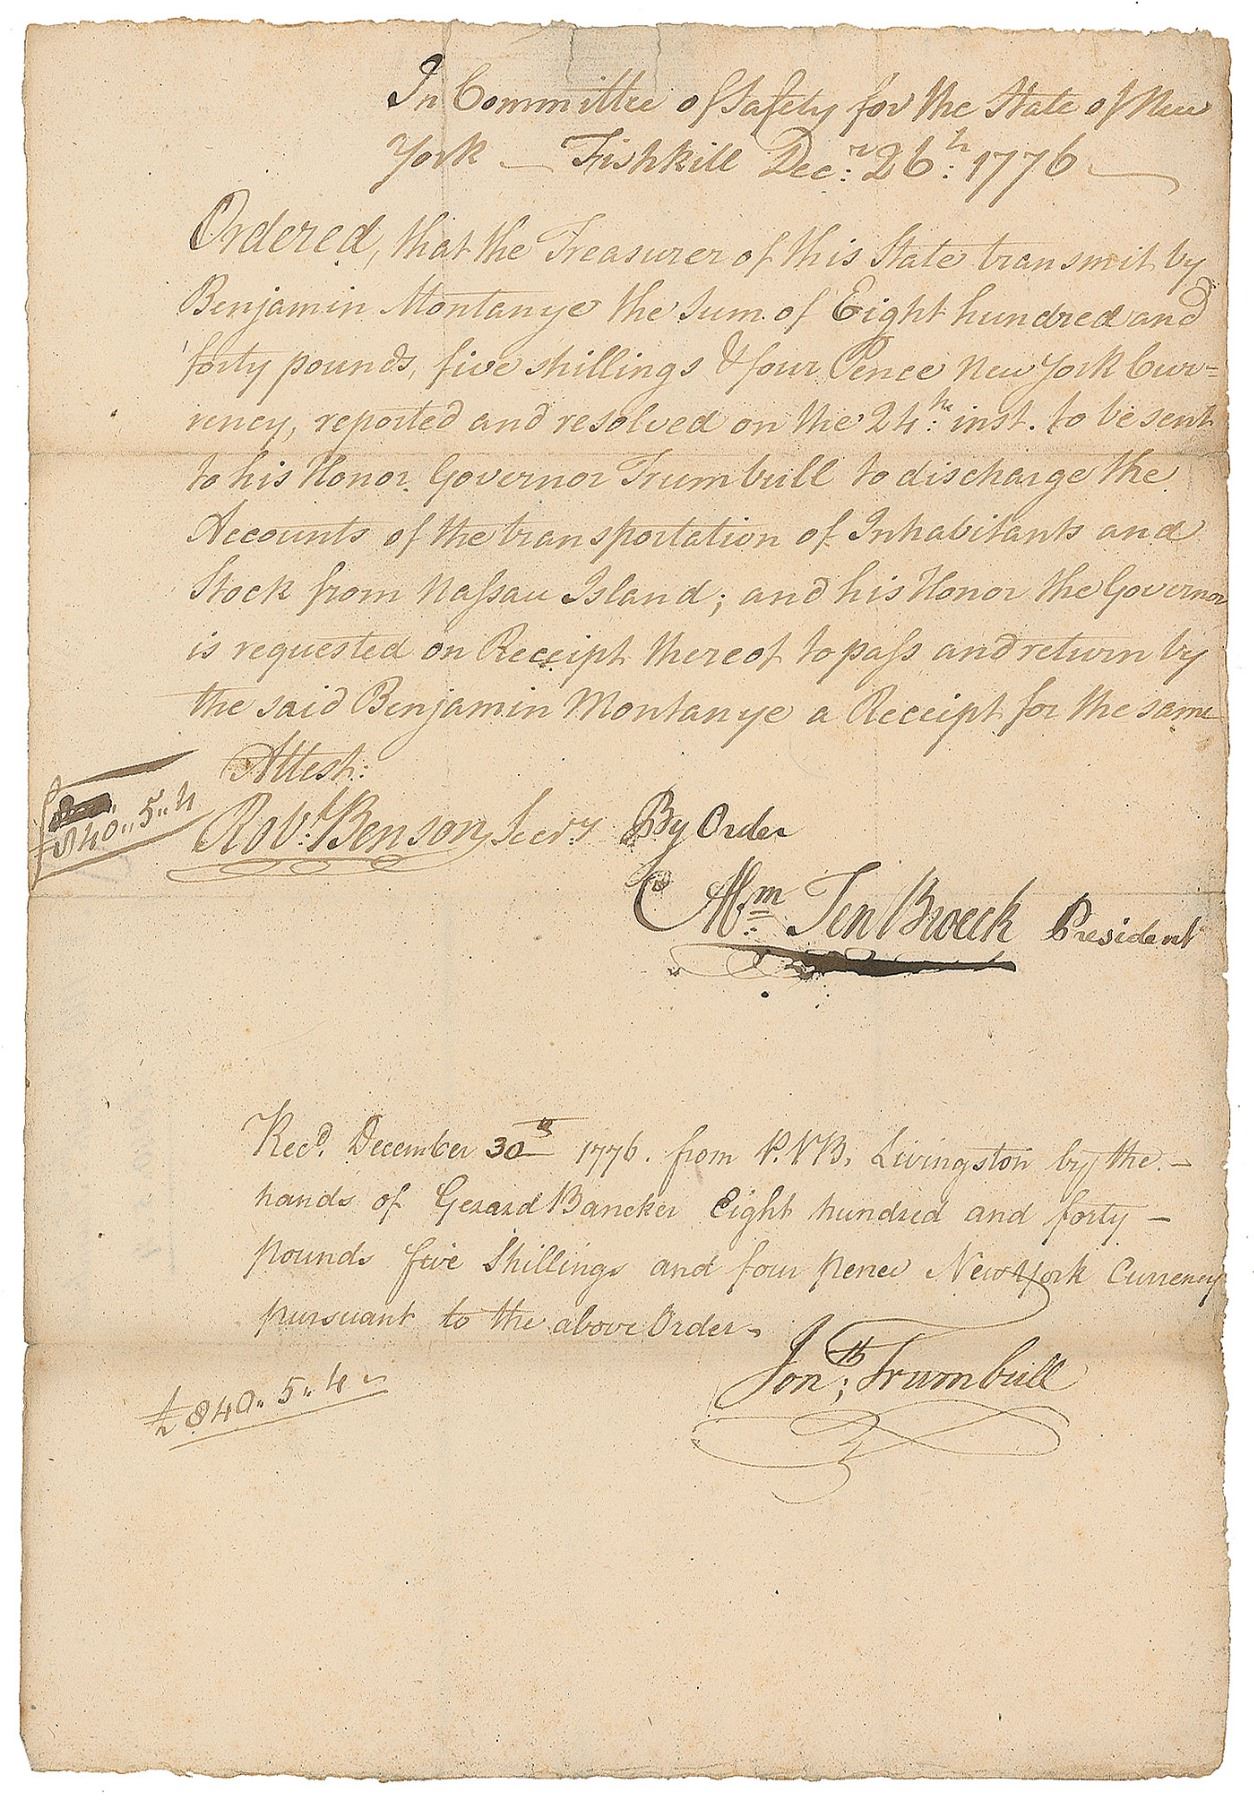 In Committee of Safety for the State of New
York — Fishkill Dec:r 26:th 1776 —
Ordered, that the Treasurer of this State transmit by
Benjamin Montanye the Sum of Eight hundred and
forty pounds, five shillings & four Pence New York Cur=
rency, reported and resolved on the 24:th inst. to be sent
to his Honor Governor Trumbull to discharge the
Accounts of the transportation of Inhabitants and
Stock from Nassau Island; and his Honor the Governor
is requested on Receipt thereof to pass and return by
the said Benjamin Montanye a Receipt for the same
Attest:
£840.. 5.. 4
Rob:t Benson, Secry
By Order
Abm: Ten Broeck President
Recd. December 30th 1776. from P. V B. Livingston by the —
hands of Gerard Bancker Eight hundred and forty —
pounds five Shillings and four pence New York Currency
pursuant to the above Order
Jonth; Trumbull
£ 840.. 5.. 4